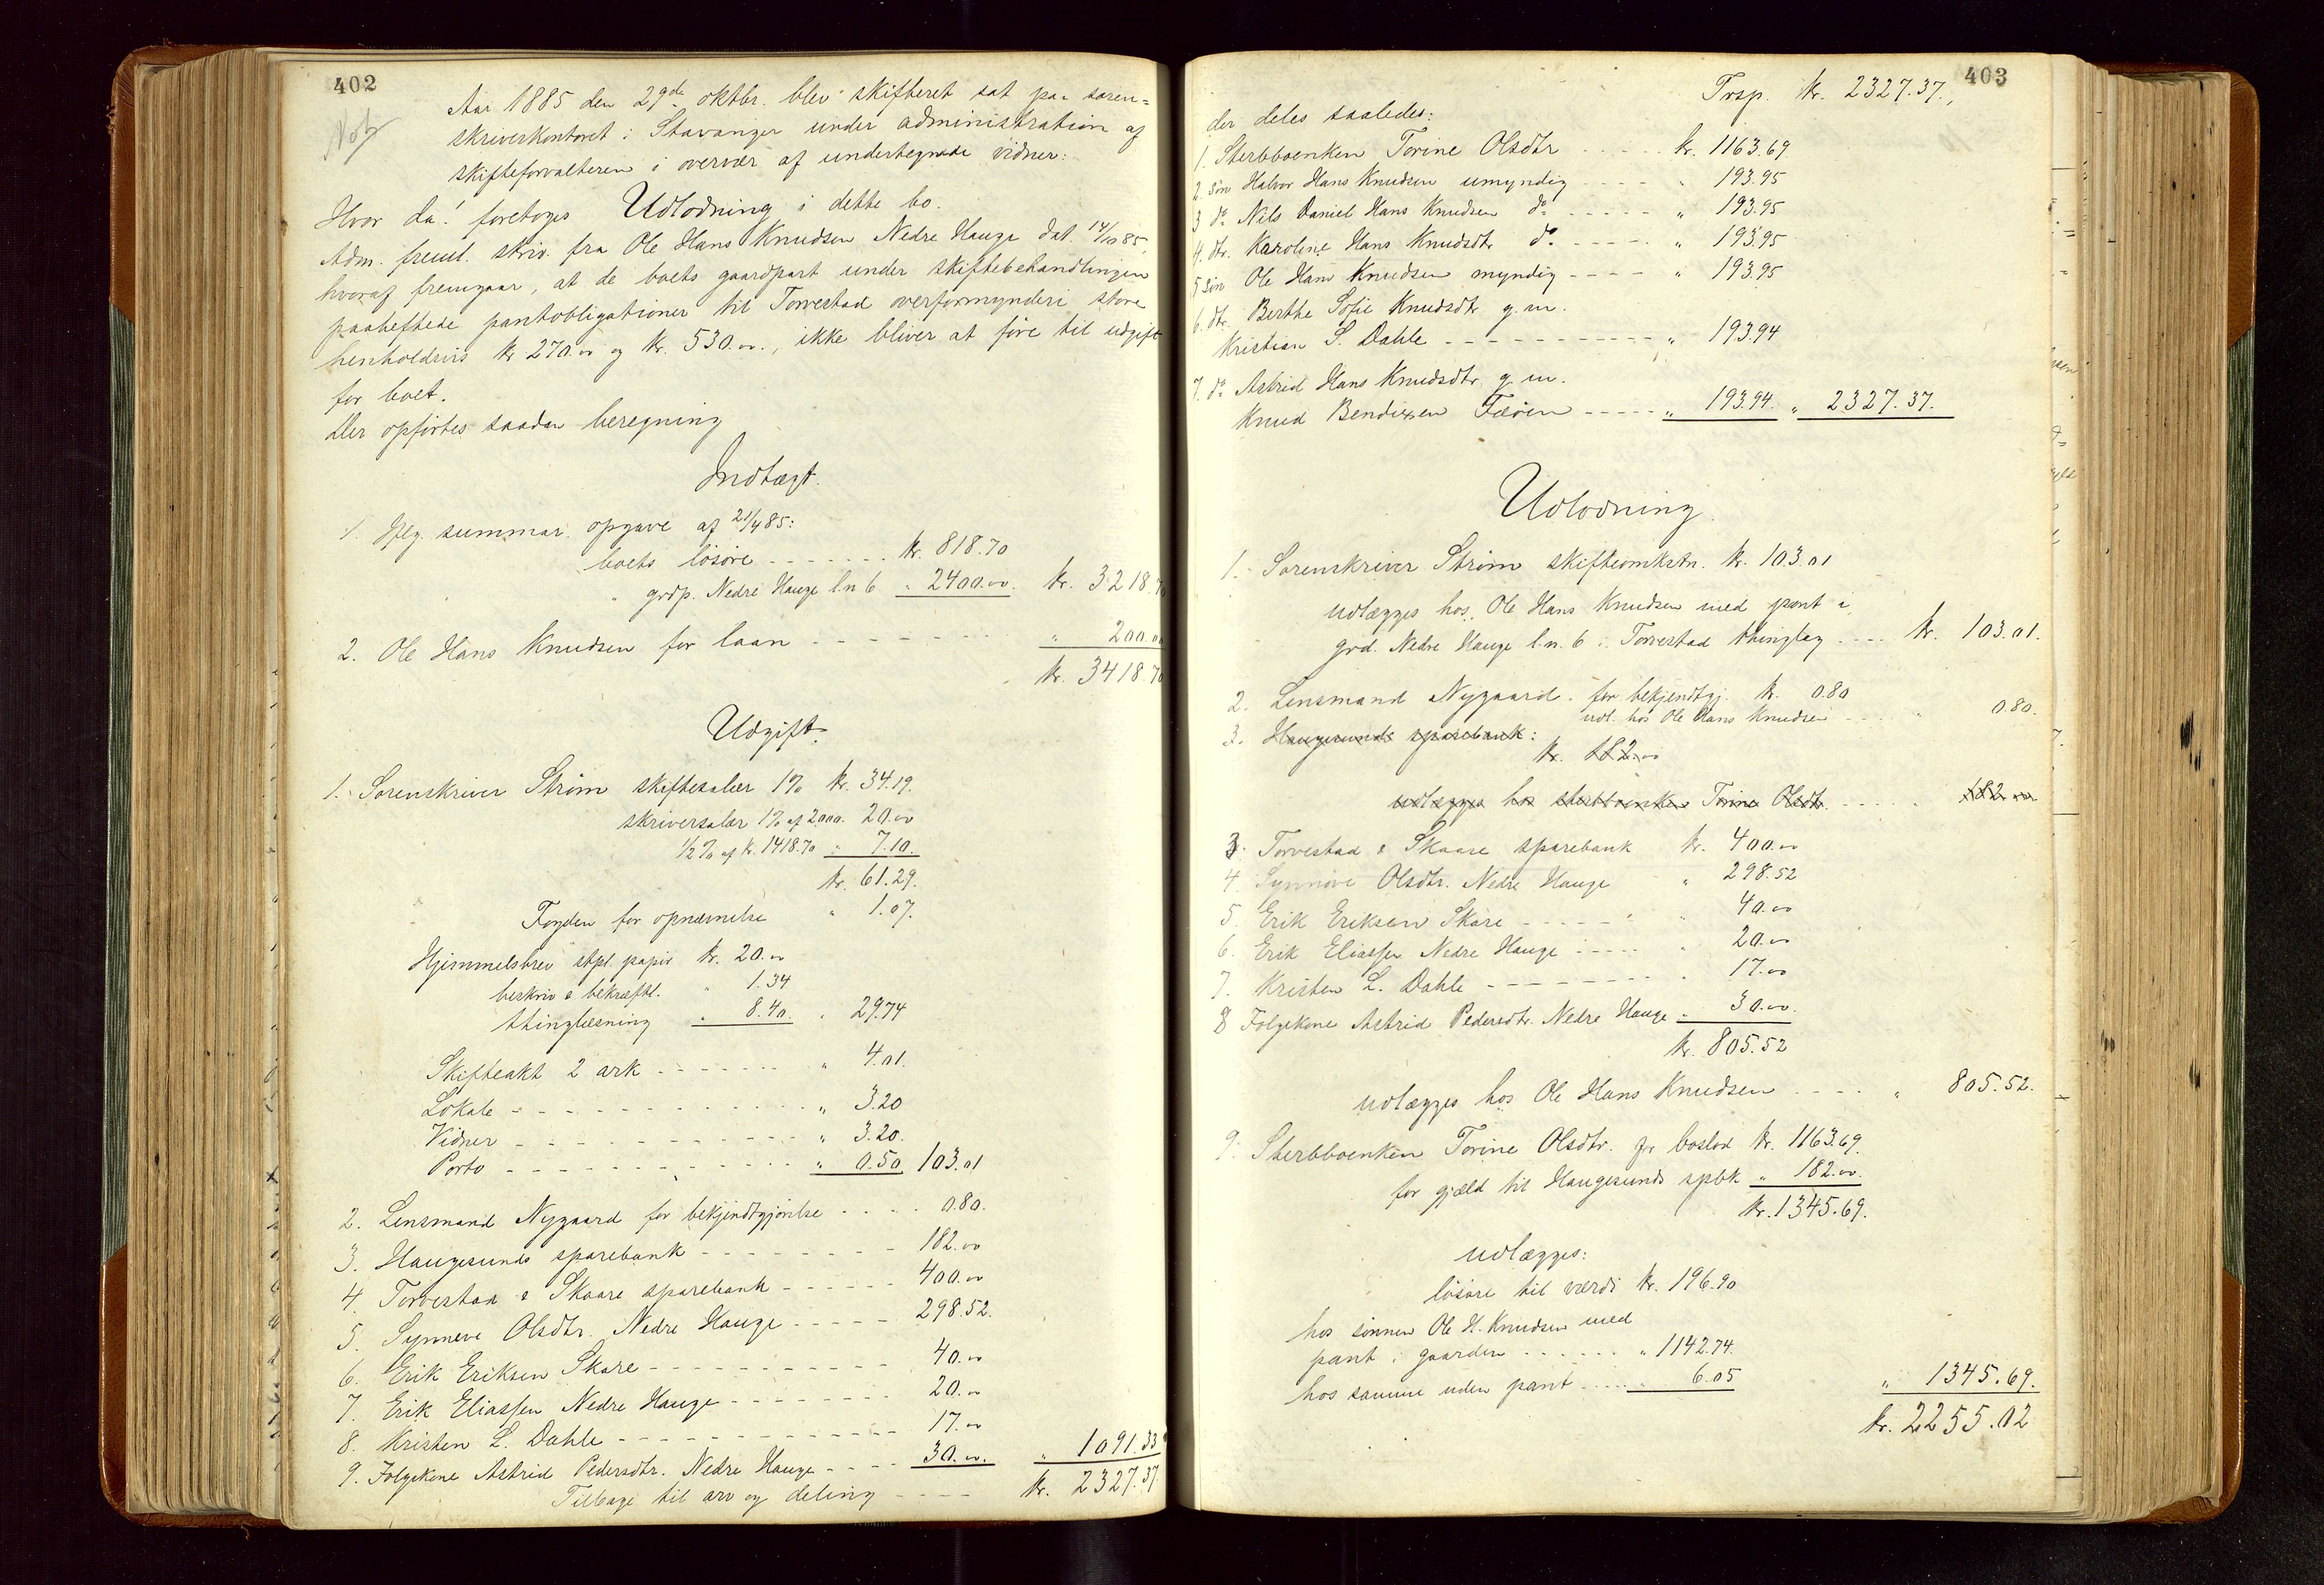 402
Aar 1885 den 29de oktbr. blev skifteret sat paa soren=
skriverkontoret i Stavanger under administration af
skifteforvalteren i overvær af undertegnede vidner:
Hvor da! foretoges Udlodning i dette bo.
Adm. freml. skriv. fra Ole Hans Knudsen Nedre Hauge dat. 14/10 85,
hvoraf fremgaar, at de boets gaardpart under skiftebehandlingen
paaheftede pantobligationer til Torvestad overformynderi store
henholdsvis kr 270.00 og kr. 530.00., ikke bliver at føre til udgift
for boet.
Der opførtes saadan beregning
Indtægt.
1. Iflg. summar. opgave af 21/4 85:
boets løsøre - - - - - - - kr. 818.70
" grdp. Nedre Hauge l.n 6 " 2400.00. kr. 3218.70
2. Ole Hans Knudsen for laan - - - - - - - " 200.00
kr. 3418.70
Udgift.
1. Sorenskriver Strøm skiftesalær 1% kr. 34.19.
skriversalær 1% af 2000. 20.00
1/2% af kr. 1418.70 " 7.10.
kr. 61.29.
Fogden for opnævnelse " 1.07.
Hjemmelsbrev stpl. papir kr. 20.00
beskriv & bekræft. " 1.34
thinglæsning " 8.40. " 29.74
Skifteakt 2 ark - - - - - - - " 4.01.
Lokale - - - - - - - - - - - " 3.20
Vidner - - - - - - - - - - - " 3.20.
Porto - - - - - - - - - - - " 0.50 103.01
2. Lensmand Nygaard for bekjendtgjørelse - - - - 0.80.
3. Haugesunds sparebank - - - - - - - - 182.00
4. Torvestad & Skaare sparebank - - - - - - 400.00
5. Synnøve Olsdtr. Nedre Hauge - - - - - 298.52.
6. Erik Eriksen Skare - - - - - - - - - - - 40.00
7. Erik Eliassen Nedre Hauge - - - - - - - 20.00
8. Kristen L. Dahle - - - - - - - - - - - - - 17.00
9. Folgekone Astrid Pedersdtr. Nedre Hauge - - - - 30.00. " 1091.33
Tilbage til arv og deling - - - - kr. 2327.37.
403
Trsp. kr. 2327.37.,
der deles saaledes:
1. Sterbboenken Torine Olsdtr - - - - - kr. 1163.69
2. søn Halvor Hans Knudsen umyndig - - - - " 193.95
3 do Nils Daniel Hans Knudsen do - - - - - " 193.95
4. dtr. Karoline Hans Knudsdtr do. - - - - - " 193.95
5 søn Ole Hans Knudsen myndig - - - - " 193.95
6. dtr. Berthe Sofie Knudsdtr g.m.
Kristian S. Dahle - - - - - - - - - - - " 193.94
7. do Astrid Hans Knudsdtr g.m.
Knud Bendixen Fæøen - - - - - " 193.94. " 2327.37.
Udlodning.
1. Sorenskriver Strøm skifteomkstn. kr. 103.01
udlægges hos Ole Hans Knudsen med pant i
grd. Nedre Hauge l.n. 6 i Torvestad thinglag - - - - kr. 103.01.
2. Lensmand Nygaard. for bekjendtgj. kr. 0.80
udl. hos Ole Hans Knudsen - - - - " 0.80.
3. Haugesunds sparebank:
kr. 182.00
udlægges hos sterbboenken Torine Olsdtr. - - - - " 182.00.
3. Torvestad & Skaare sparebank kr. 400.00
4. Synnøve Olsdtr. Nedre Hauge " 298.52
5. Erik Eriksen Skare - - - - - - " 40.00
6. Erik Eliassen Nedre Hauge - - - - - " 20.00
7. Kristen L. Dahle - - - - - - - - " 17.00
8 Folgekone Astrid Pedersdtr. Nedre Hauge " 30.00.
kr. 805.52
udlægges hos Ole Hans Knudsen - - - - " 805.52.
9. Sterbboenken Torine Olsdtr. for boslod kr. 1163.69.
for gjæld til Haugesunds spbk " 182.00.
kr. 1345.69.
udlægges:
løsøre til værdi kr. 196.90
hos sønnen Ole H. Knudsen med
pant i gaarden - - - - - - " 1142.74.
hos samme uden pant - - - - " 6.05 " 1345.69.
kr. 2255.02